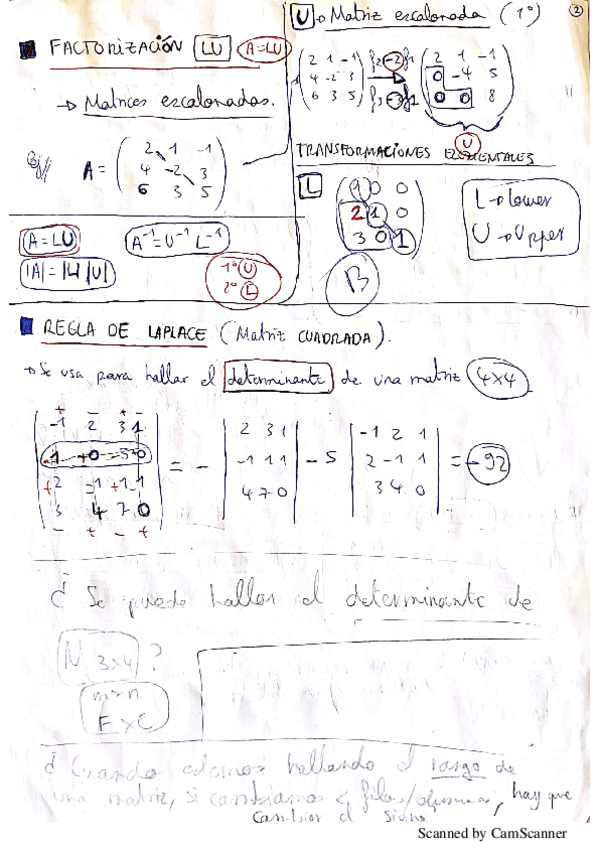 FACTORIZACIÓN LU A=LU
→ Matrices escalonadas.
A = ( 2 1 -1
4 -2 3
6 3 5 )
A=LU A⁻¹=U⁻¹ L⁻¹
|A|=|L||U|
1º U
2º L
U → Matriz escalonada (1º) 2
( 2 1 -1 f2-2f1 ( 2 1 -1
4 -2 3 → 0 -4 5
6 3 5 ) f3-3f1 0 0 8 )
U
TRANSFORMACIONES ELEMENTALES
L ( 1 0 0 L → Lower
2 1 0 U → Upper
3 0 1 )
B
REGLA DE LAPLACE (Matriz CUADRADA).
→ Se usa para hallar el determinante de una matriz 4x4
+ - + -
-1 2 3 1 2 3 1 -1 2 1
-1 +0 -5 0 = - -1 1 1 - 5 2 -1 1 = -92
+2 -1 +1 -1 4 7 0 3 4 0
3 4 7 0
- + - +
¿ Se puede hallar el determinante de
N 3x4 ?
m x n
F x C
¿ Cuando estamos hallando el rango de
una matriz, si cambiamos 2 filas/columnas, hay que
cambiar el signo
Scanned by CamScanner